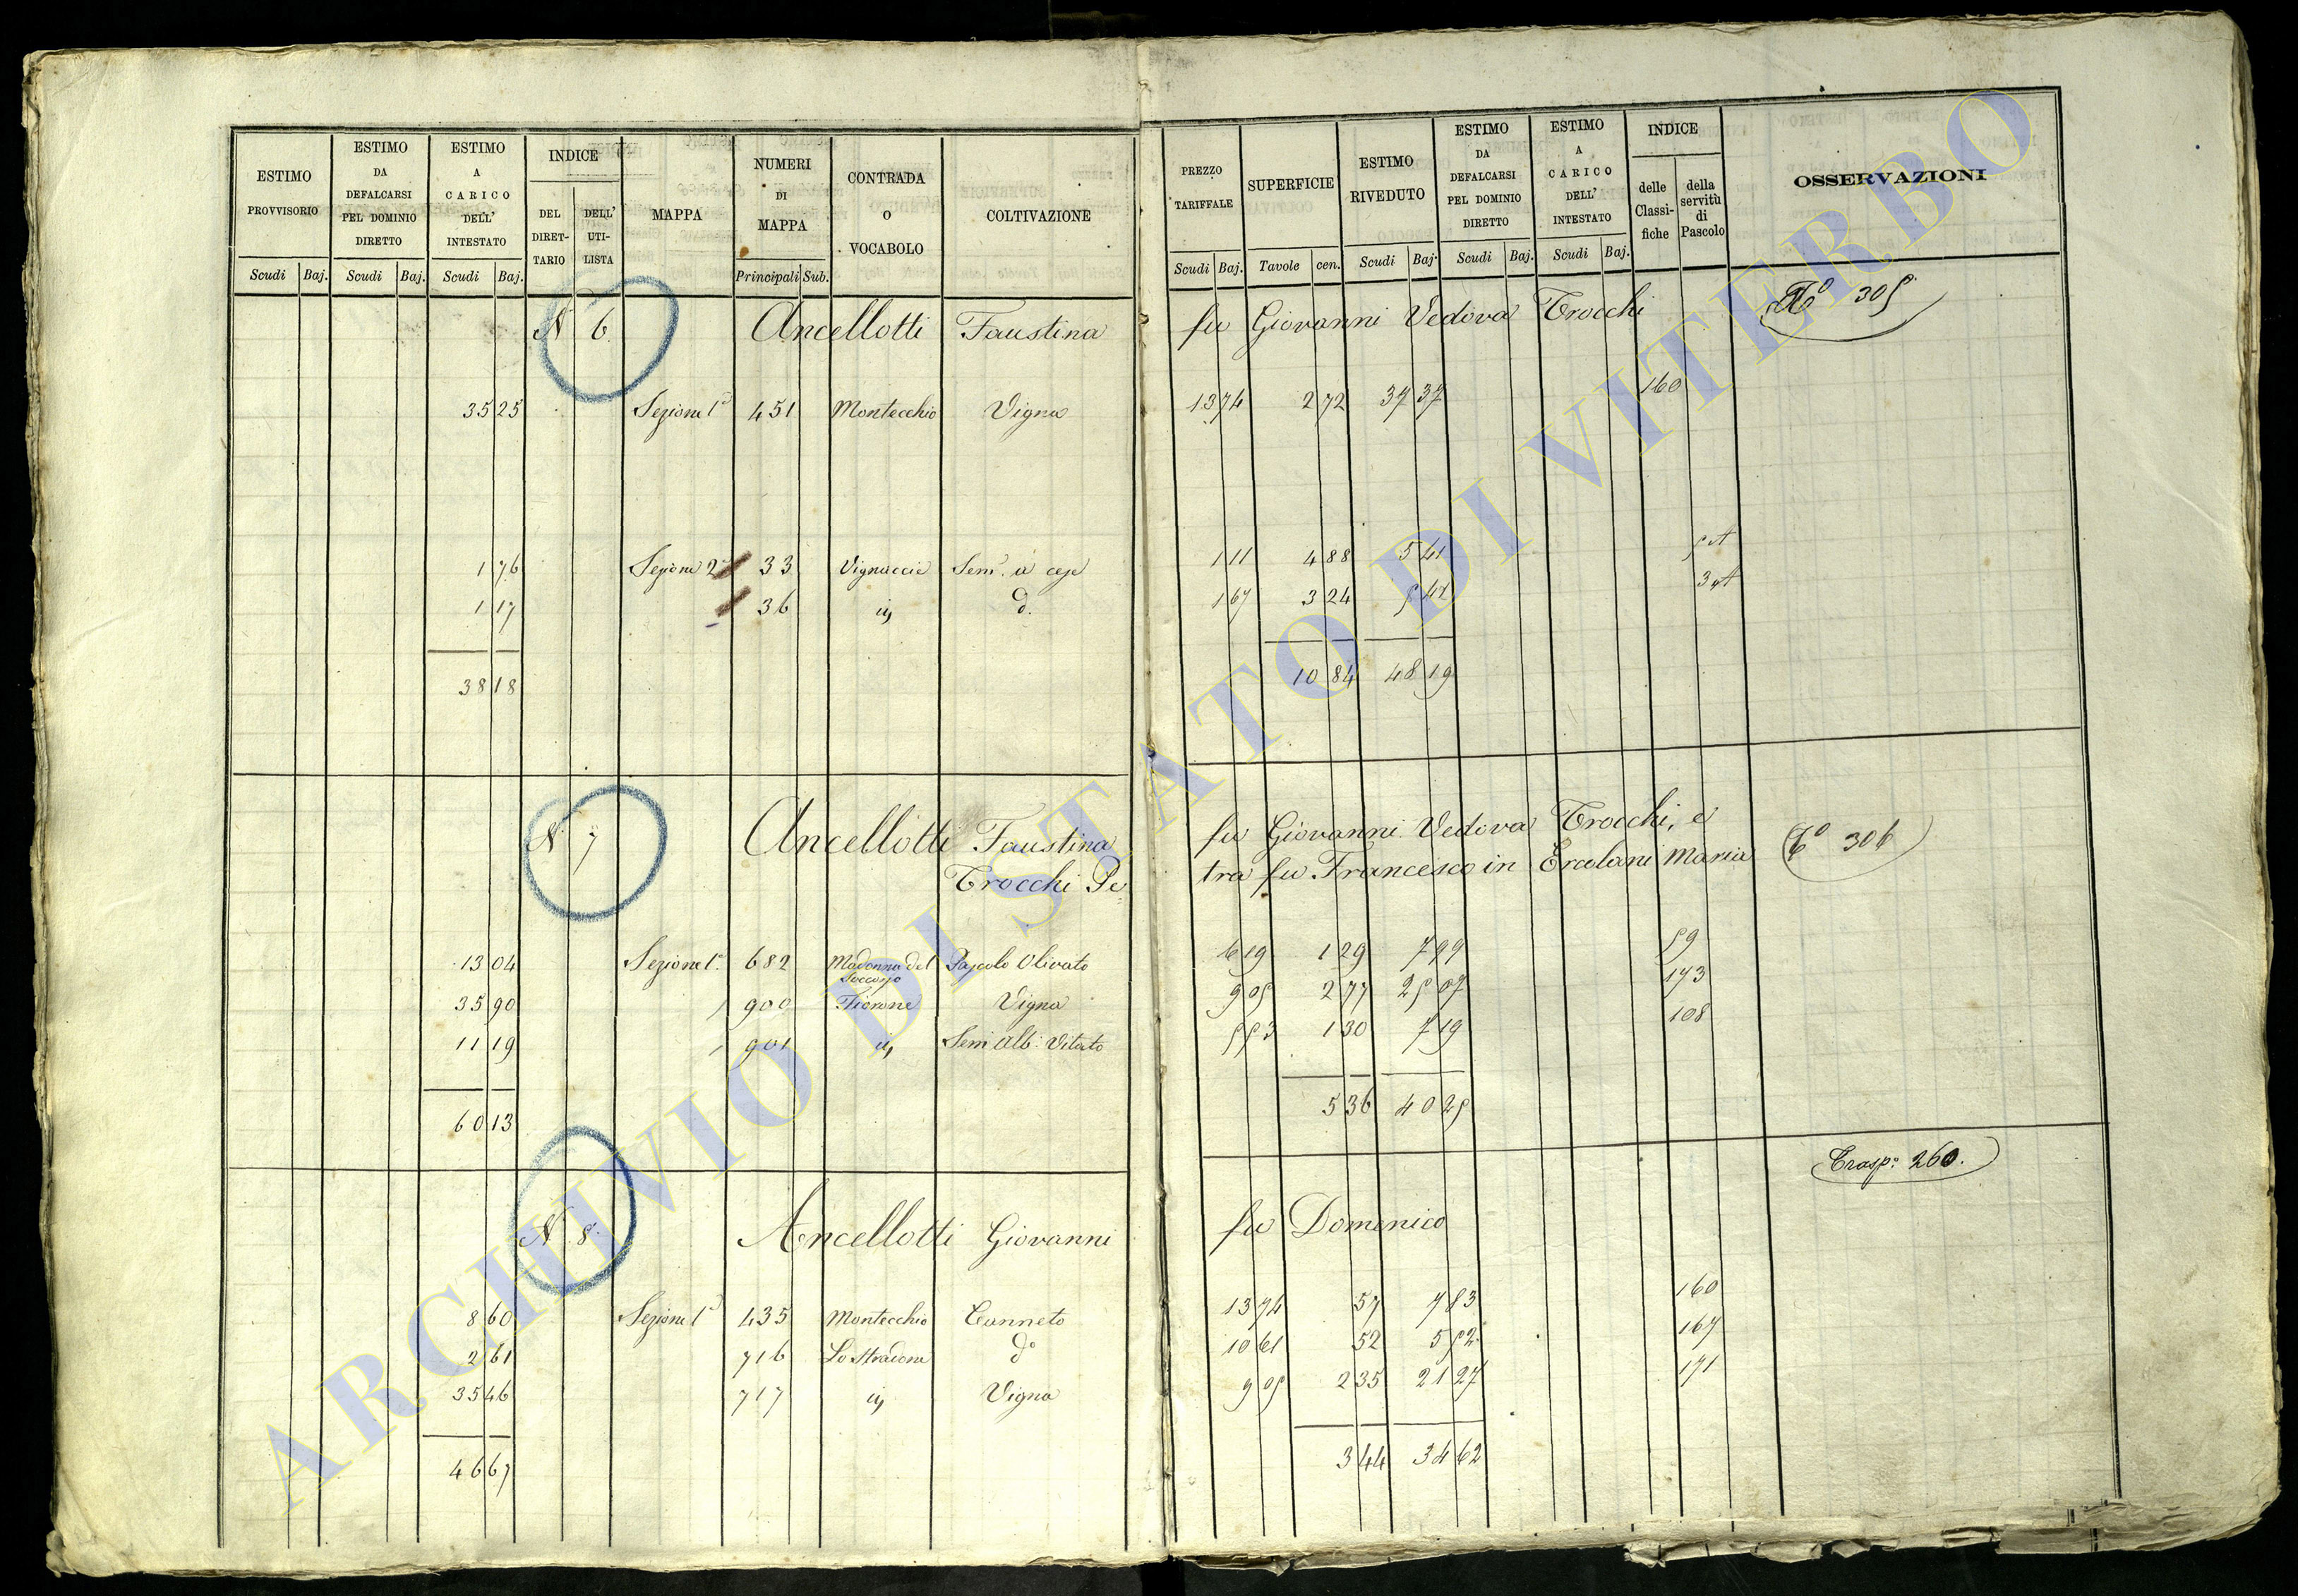 ESTIMO PROVVISORIO
ESTIMO DA DEFALCARSI PEL DOMINIO DIRETTO
ESTIMO A CARICO DELL' INTESTATO
INDICE
DEL DIRET-TARIO
DELL' UTI-LISTA
MAPPA
NUMERI DI MAPPA
CONTRADA O VOCABOLO
COLTIVAZIONE
PREZZO TARIFFALE
SUPERFICIE
ESTIMO RIVEDUTO
ESTIMO DA DEFALCARSI PEL DOMINIO DIRETTO
ESTIMO A CARICO DELL' INTESTATO
INDICE
delle Classi-fiche
della servitù di Pascolo
OSSERVAZIONI
Scudi Baj. Scudi Baj. Scudi Baj. Principali Sub. Scudi Baj. Tavole cen. Scudi Baj. Scudi Baj. Scudi Baj.
N 6. Ancellotti Faustina fu Giovanni Vedova Trocchi 305
35 25 Sezione 1a 451 Montecchio Vigna 13 74 2 72 37 37 160
1 76 Sezione 2a 33 Vignaccie Sem. a cese 1 11 4 88 5 41 5 A
1 17 36 id. 1 67 3 24 5 41 3 A
38 18 10 84 48 19
N 7 Ancellotti Faustina fu Giovanni Vedova Trocchi, e 306
Trocchi Pe= tra fu Francesco in Ercolani Maria
13 04 Sezione 1a 682 Madonna del Soccorso Pascolo Olivato 6 19 1 29 7 99 59
35 90 900 Fiorone Vigna 9 05 2 77 25 07 173
11 19 901 id. Sem. Alb. Vitato 5 53 1 30 7 19 108
60 13 5 36 40 25
Trasp: 260.
N 8. Ancellotti Giovanni fu Domenico
8 60 Sezione 1a 435 Montecchio Canneto 13 74 57 7 83 160
2 61 716 Lo Stradone do 10 61 52 5 52 167
35 46 717 id. Vigna 9 05 2 35 21 27 171
46 67 3 44 34 62
ARCHIVIO DI STATO DI VITERBO